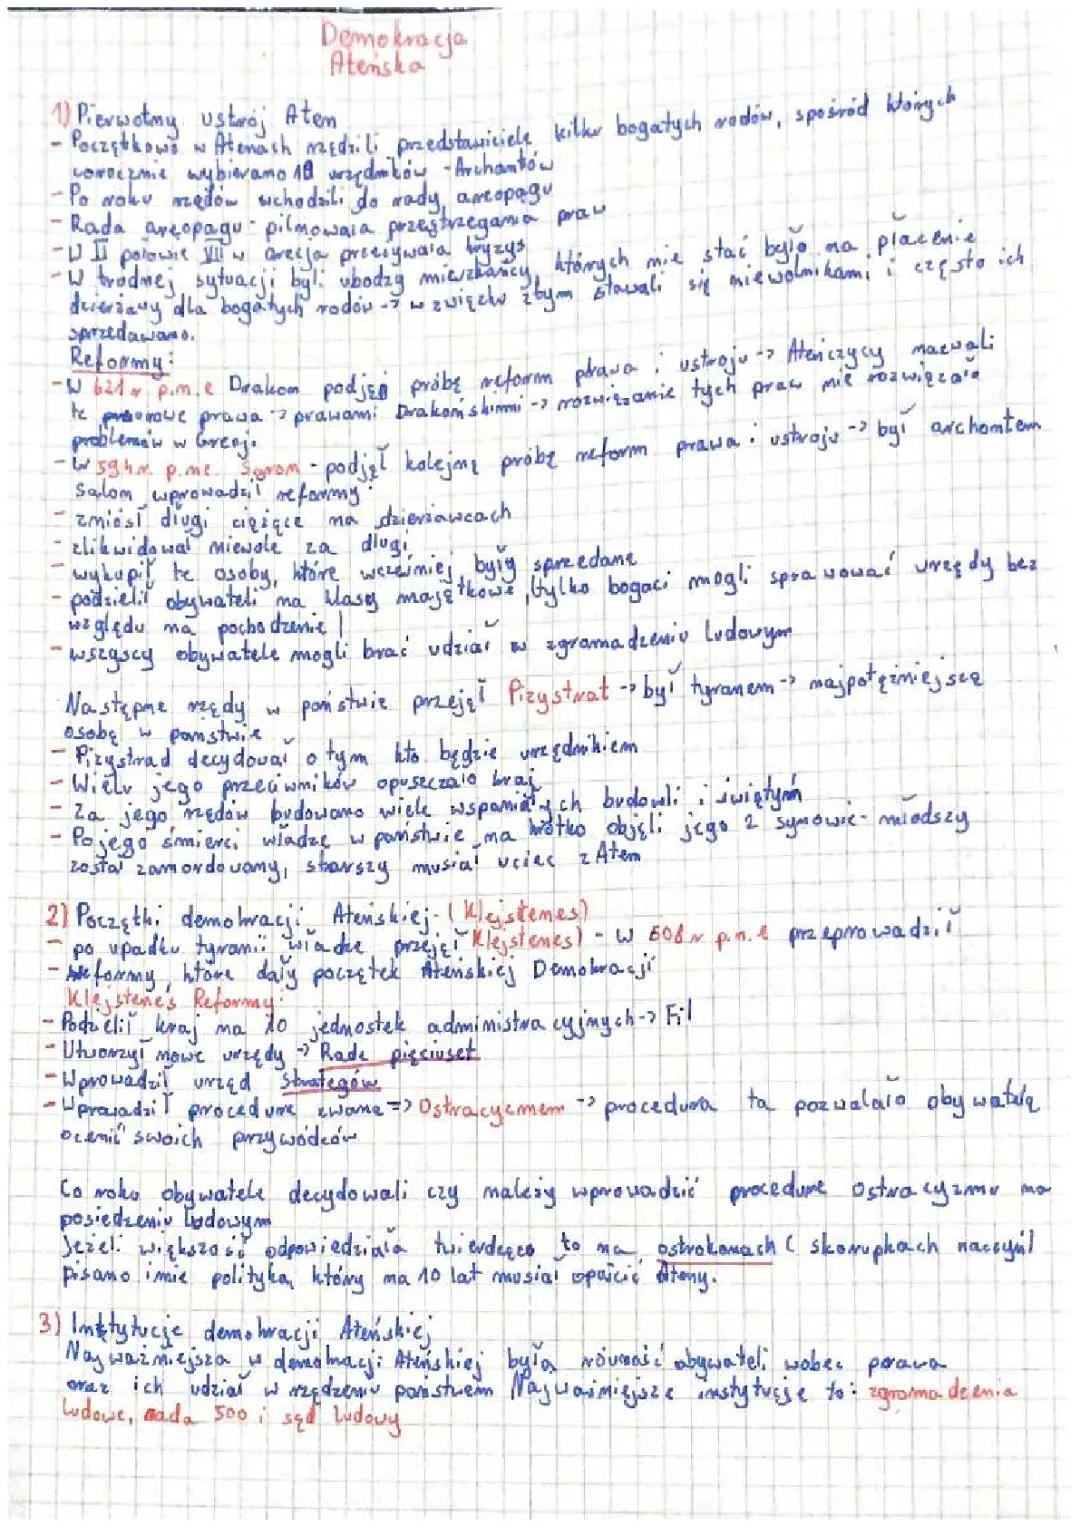 Demokracja
Ateńska
1) Pierwotny ustrój Aten
- Początkowo w Atenach rządzili przedstawiciele kilku bogatych rodów, spośród których
corocznie wybierano 10 urzędników - Archontów
- Po roku rządów wchodzili do rady areopagu
- Rada areopagu - pilnowała przestrzegania praw
- W II połowie VII w Grecja przeżywała kryzys
- W trudnej sytuacji byli ubodzy mieszkańcy, których nie stać było na płacenie
dzierżawy dla bogatych rodów -> w związku z tym stawali się niewolnikami i często ich
sprzedawano.
Reformy:
- W 621 r. p.n.e Drakon podjął próbę reform prawa i ustroju -> Ateńczycy nazwali
te surowe prawa -> prawami Drakońskimi -> rozwiązanie tych praw nie rozwiązało
problemów w Grecji.
- W 594 r. p.n.e. Solon - podjął kolejną próbę reform prawa i ustroju -> był archontem
Salom wprowadził reformy:
- zniósł długi ciążące na dzierżawcach
- zlikwidował niewole za długi
- wykupił te osoby, które wcześniej były sprzedane
- podzielił obywateli na klasy majątkowe, (tylko bogaci mogli sprawować urzędy bez
względu na pochodzenie)
- wszyscy obywatele mogli brać udział w zgromadzeniu ludowym
Następne rządy w państwie przejął Pizystrat -> był tyranem -> najpotężniejszą
osobą w państwie
- Pizystrad decydował o tym kto będzie urzędnikiem
- Wielu jego przeciwników opuszczało kraj
- Za jego rządów budowano wiele wspaniałych budowli i świątyń
- Po jego śmierci władzę w państwie na krótko objęli jego 2 synowie - młodszy
został zamordowany, starszy musiał uciec z Aten
2) Początki demokracji Ateńskiej - (Klejstenes)
- po upadku tyranii władze przejął Klejstenes) - w 508 r p.n.e przeprowadził
- Reformy, które dały początek Ateńskiej Demokracji
Klejstenes Reformy:
- Podzielił kraj na 10 jednostek administracyjnych -> Fil
- Utworzył nowe urzędy -> Rade pięciuset
- Wprowadził urząd Strategów
- Wprowadził procedure zwaną => Ostracyzmem -> procedura ta pozwalała obywatelą
ocenić swoich przywódców
Co roku obywatele decydowali czy należy wprowadzić procedure ostracyzmu na
posiedzeniu ludowym
Jeżeli większość odpowiedziała twierdząco to na ostrokonach (skorupkach naczyń)
pisano imie polityka, który na 10 lat musiał opuścić Ateny.
3) Instytucje demokracji Ateńskiej
Najważniejsza w demokracji Ateńskiej była równość obywateli wobec prawa
oraz ich udział w rządzeniu państwem Najważniejsze instytucje to: zgromadzenia
ludowe, rada 500 i sąd ludowy